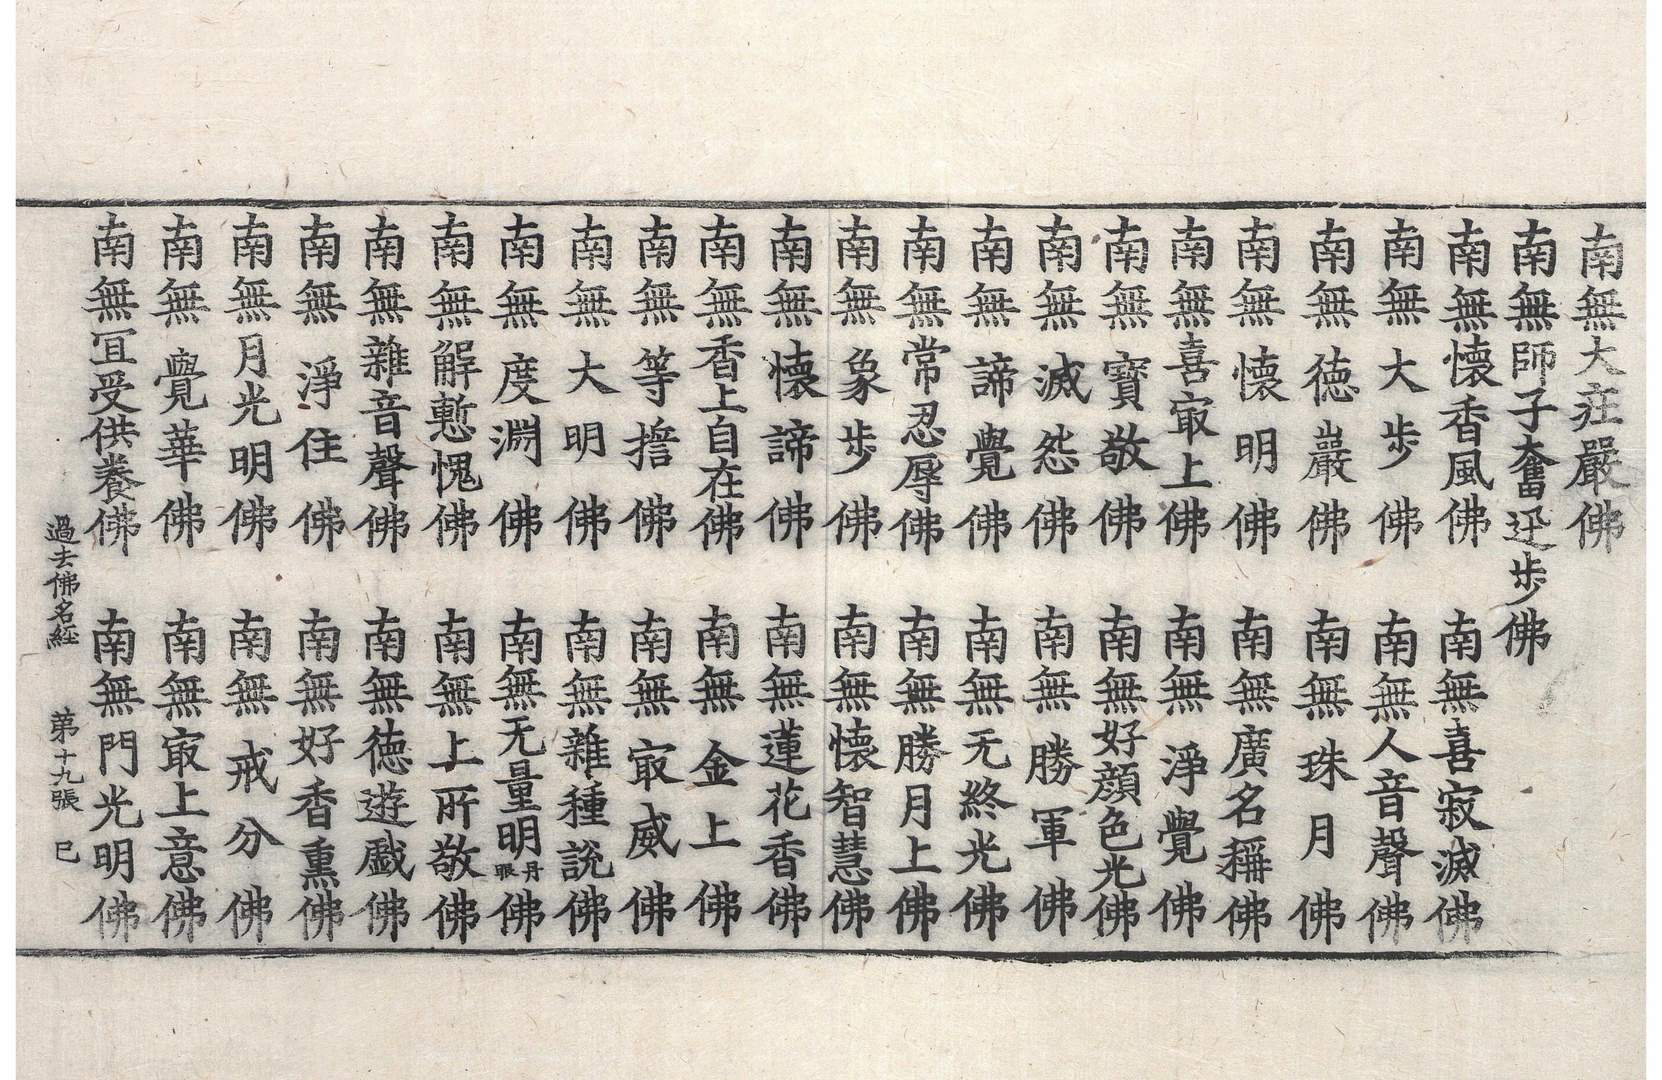 南無大莊嚴佛
南無師子奮迅步佛
南無懷香風佛 南無喜寂滅佛
南無大步佛 南無人音聲佛
南無德巖佛 南無珠月佛
南無懷明佛 南無廣名稱佛
南無喜㝡上佛 南無淨覺佛
南無寶敬佛 南無好顏色光佛
南無滅怨佛 南無勝軍佛
南無諦覺佛 南無无終光佛
南無常忍辱佛 南無勝月上佛
南無象步佛 南無懷智慧佛
南無懷諦佛 南無蓮花香佛
南無香上自在佛 南無金上佛
南無等誓佛 南無㝡威佛
南無大明佛 南無雜種說佛
南無度淵佛 南無无量明丹眼佛
南無解慙愧佛 南無上所敬佛
南無雜音聲佛 南無德遊戲佛
南無淨住佛 南無好香熏佛
南無月光明佛 南無戒分佛
南無覺華佛 南無㝡上意佛
南無冝受供養佛 南無門光明佛
過去佛名經 第十九張 巳